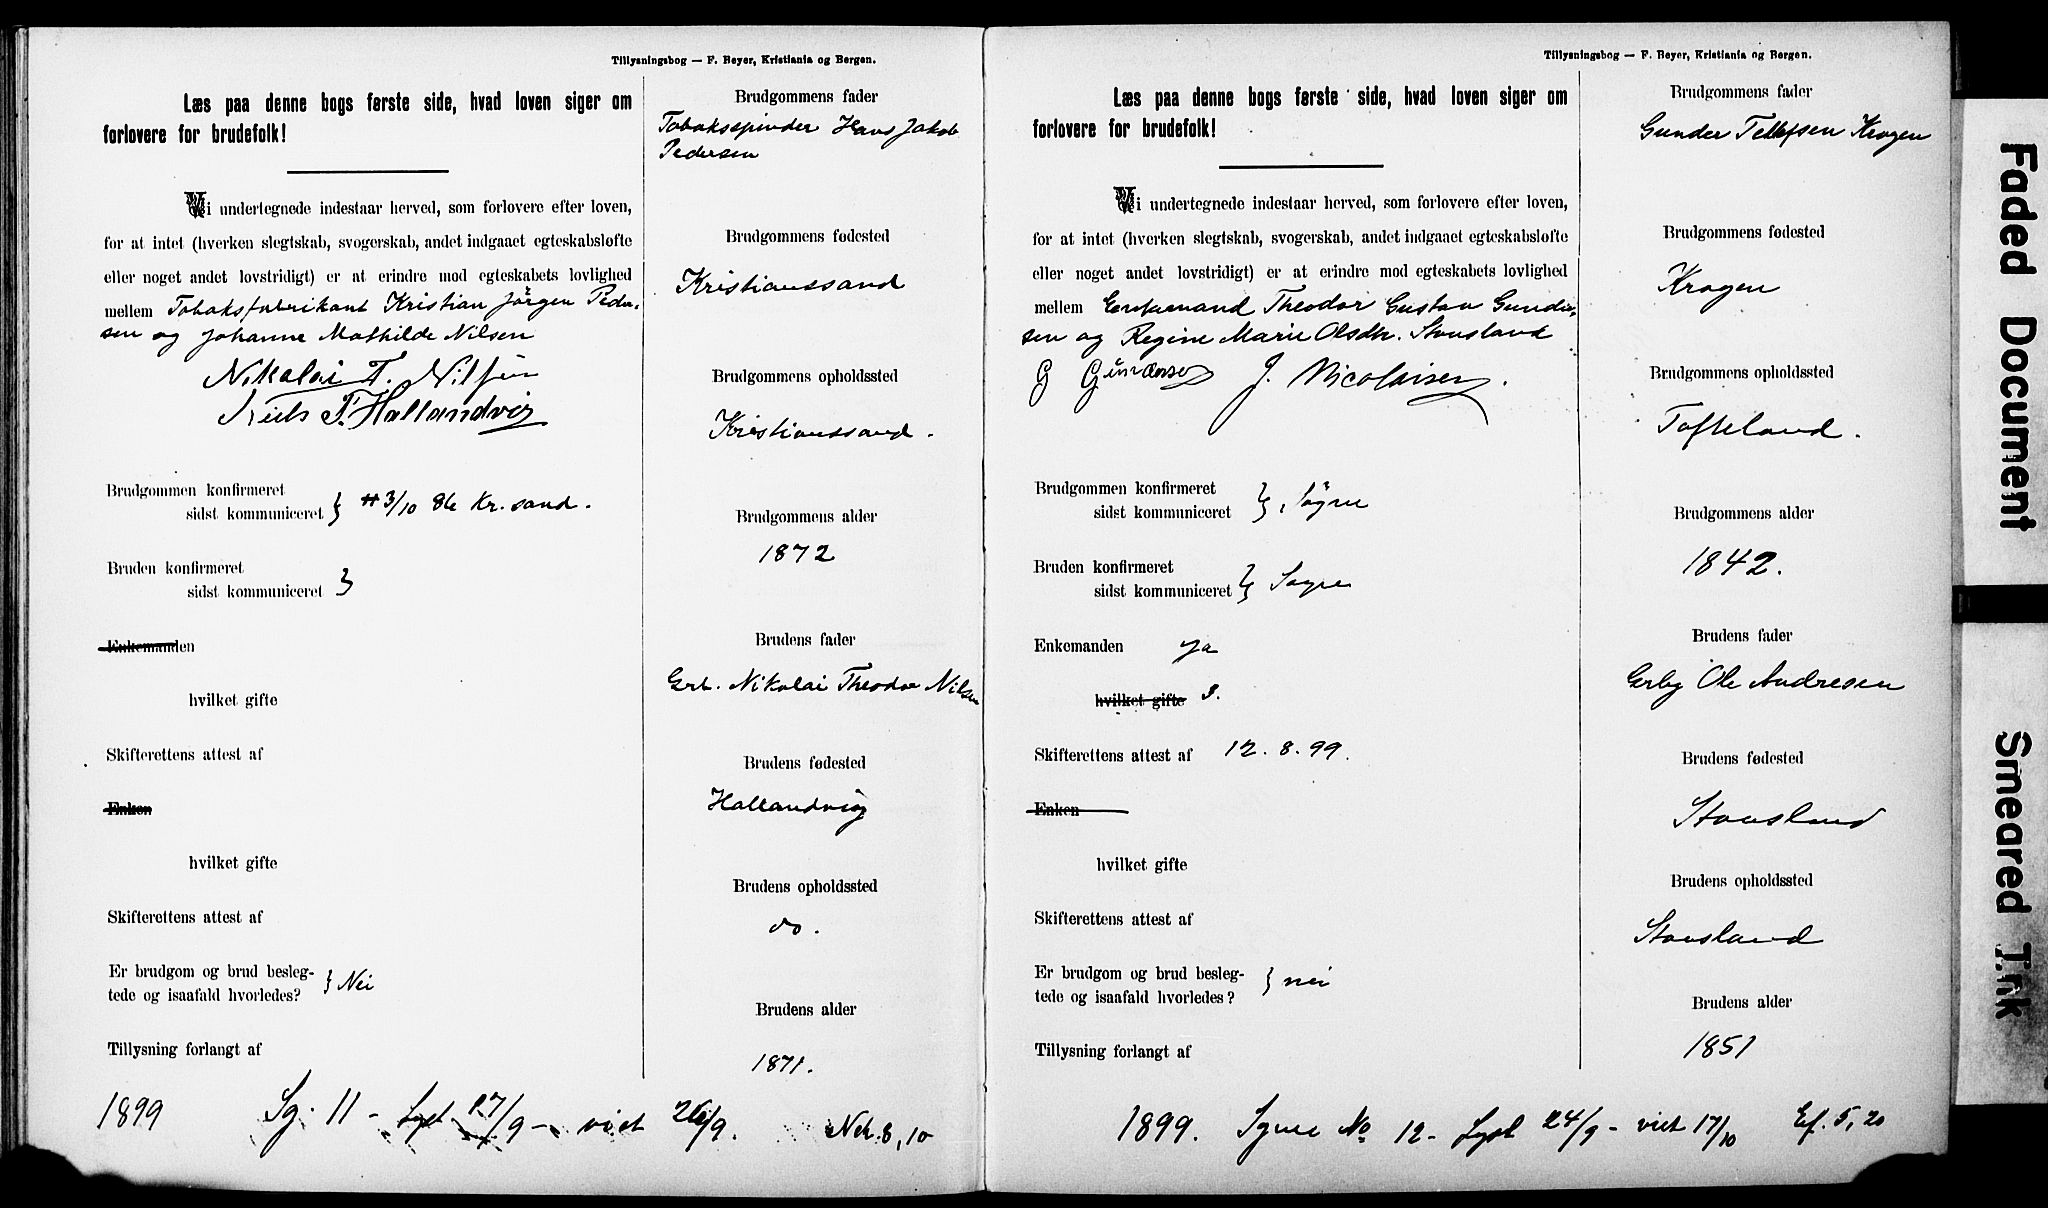 Tillysningsbog — F. Beyer, Kristiania og Bergen.
Læs paa denne bogs første side, hvad loven siger om
forlovere for brudefolk!
Vi undertegnede indestaar herved, som forlovere efter loven,
for at intet (hverken slegtskab, svogerskab, andet indgaaet egteskabsløfte
eller noget andet lovstridigt) er at erindre mod egteskabets lovlighed
mellem Tobaksfabrikant Kristian Jörgen Peder-
sen og Johanne Mathilde Nilsen
Nikolai T. Nilsen
Niels T. Hallandvig
Brudgommen konfirmeret
sidst kommuniceret } 3/10 86 Kr.sand.
Bruden konfirmeret
sidst kommuniceret }
Enkemanden
hvilket gifte
Skifterettens attest af
Enken
hvilket gifte
Skifterettens attest af
Er brudgom og brud besleg-
tede og isaafald hvorledes? } Nei
Tillysning forlangt af
Brudgommens fader
Tobaksspinder Hans Jakob
Pedersen
Brudgommens fødested
Kristianssand
Brudgommens opholdssted
Kristianssand.
Brudgommens alder
1872
Brudens fader
Grb. Nikolai Theodor Nilsen
Brudens fødested
Hallandvig
Brudens opholdssted
do.
Brudens alder
1871.
1899 Sg. 11 - Lyst 17/9 - viet 26/9. 8,10
Tillysningsbog — F. Beyer, Kristiania og Bergen.
Læs paa denne bogs første side, hvad loven siger om
forlovere for brudefolk!
Vi undertegnede indestaar herved, som forlovere efter loven,
for at intet (hverken slegtskab, svogerskab, andet indgaaet egteskabsløfte
eller noget andet lovstridigt) er at erindre mod egteskabets lovlighed
mellem Enkemand Theodor Gustav Gunder-
sen og Regine Marie Olsdtr. Stousland
G Gundersen J. Nicolaisen.
Brudgommen konfirmeret
sidst kommuniceret } Søgne
Bruden konfirmeret
sidst kommuniceret } Søgne
Enkemanden ja
hvilket gifte 3.
Skifterettens attest af 12.8.99.
Enken
hvilket gifte
Skifterettens attest af
Er brudgom og brud besleg-
tede og isaafald hvorledes? } nei
Tillysning forlangt af
Brudgommens fader
Gunder Tellefsen Kragen
Brudgommens fødested
Kragen
Brudgommens opholdssted
Tofteland.
Brudgommens alder
1842.
Brudens fader
Grbg Ole Andresen
Brudens fødested
Stousland
Brudens opholdssted
Stousland
Brudens alder
1851
1899. Sogne No 12 - Lyst 24/9 - viet 17/10 Ef. 5,20
Faded Document
Smeared Ink